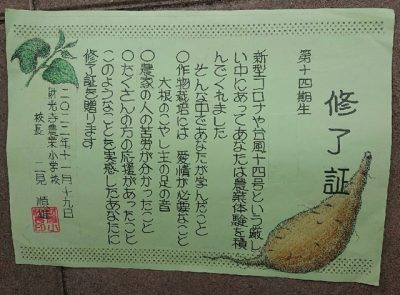 修了証
第十四期生
新型コロナや台風十四号という厳し
い中にあってあなたは農業体験を積
んでくれました
そんな中であなたが学んだこと
〇作物栽培には愛情が必要なこと
大根のこやし主の足の音
〇農家の人の苦労が分かったこと
〇たくさんの方の応援があったこと
このようなことを実感したあなたに
修了証を贈ります
二〇二二年十一月十九日
財光寺農業小学校
校長 二見 順雄